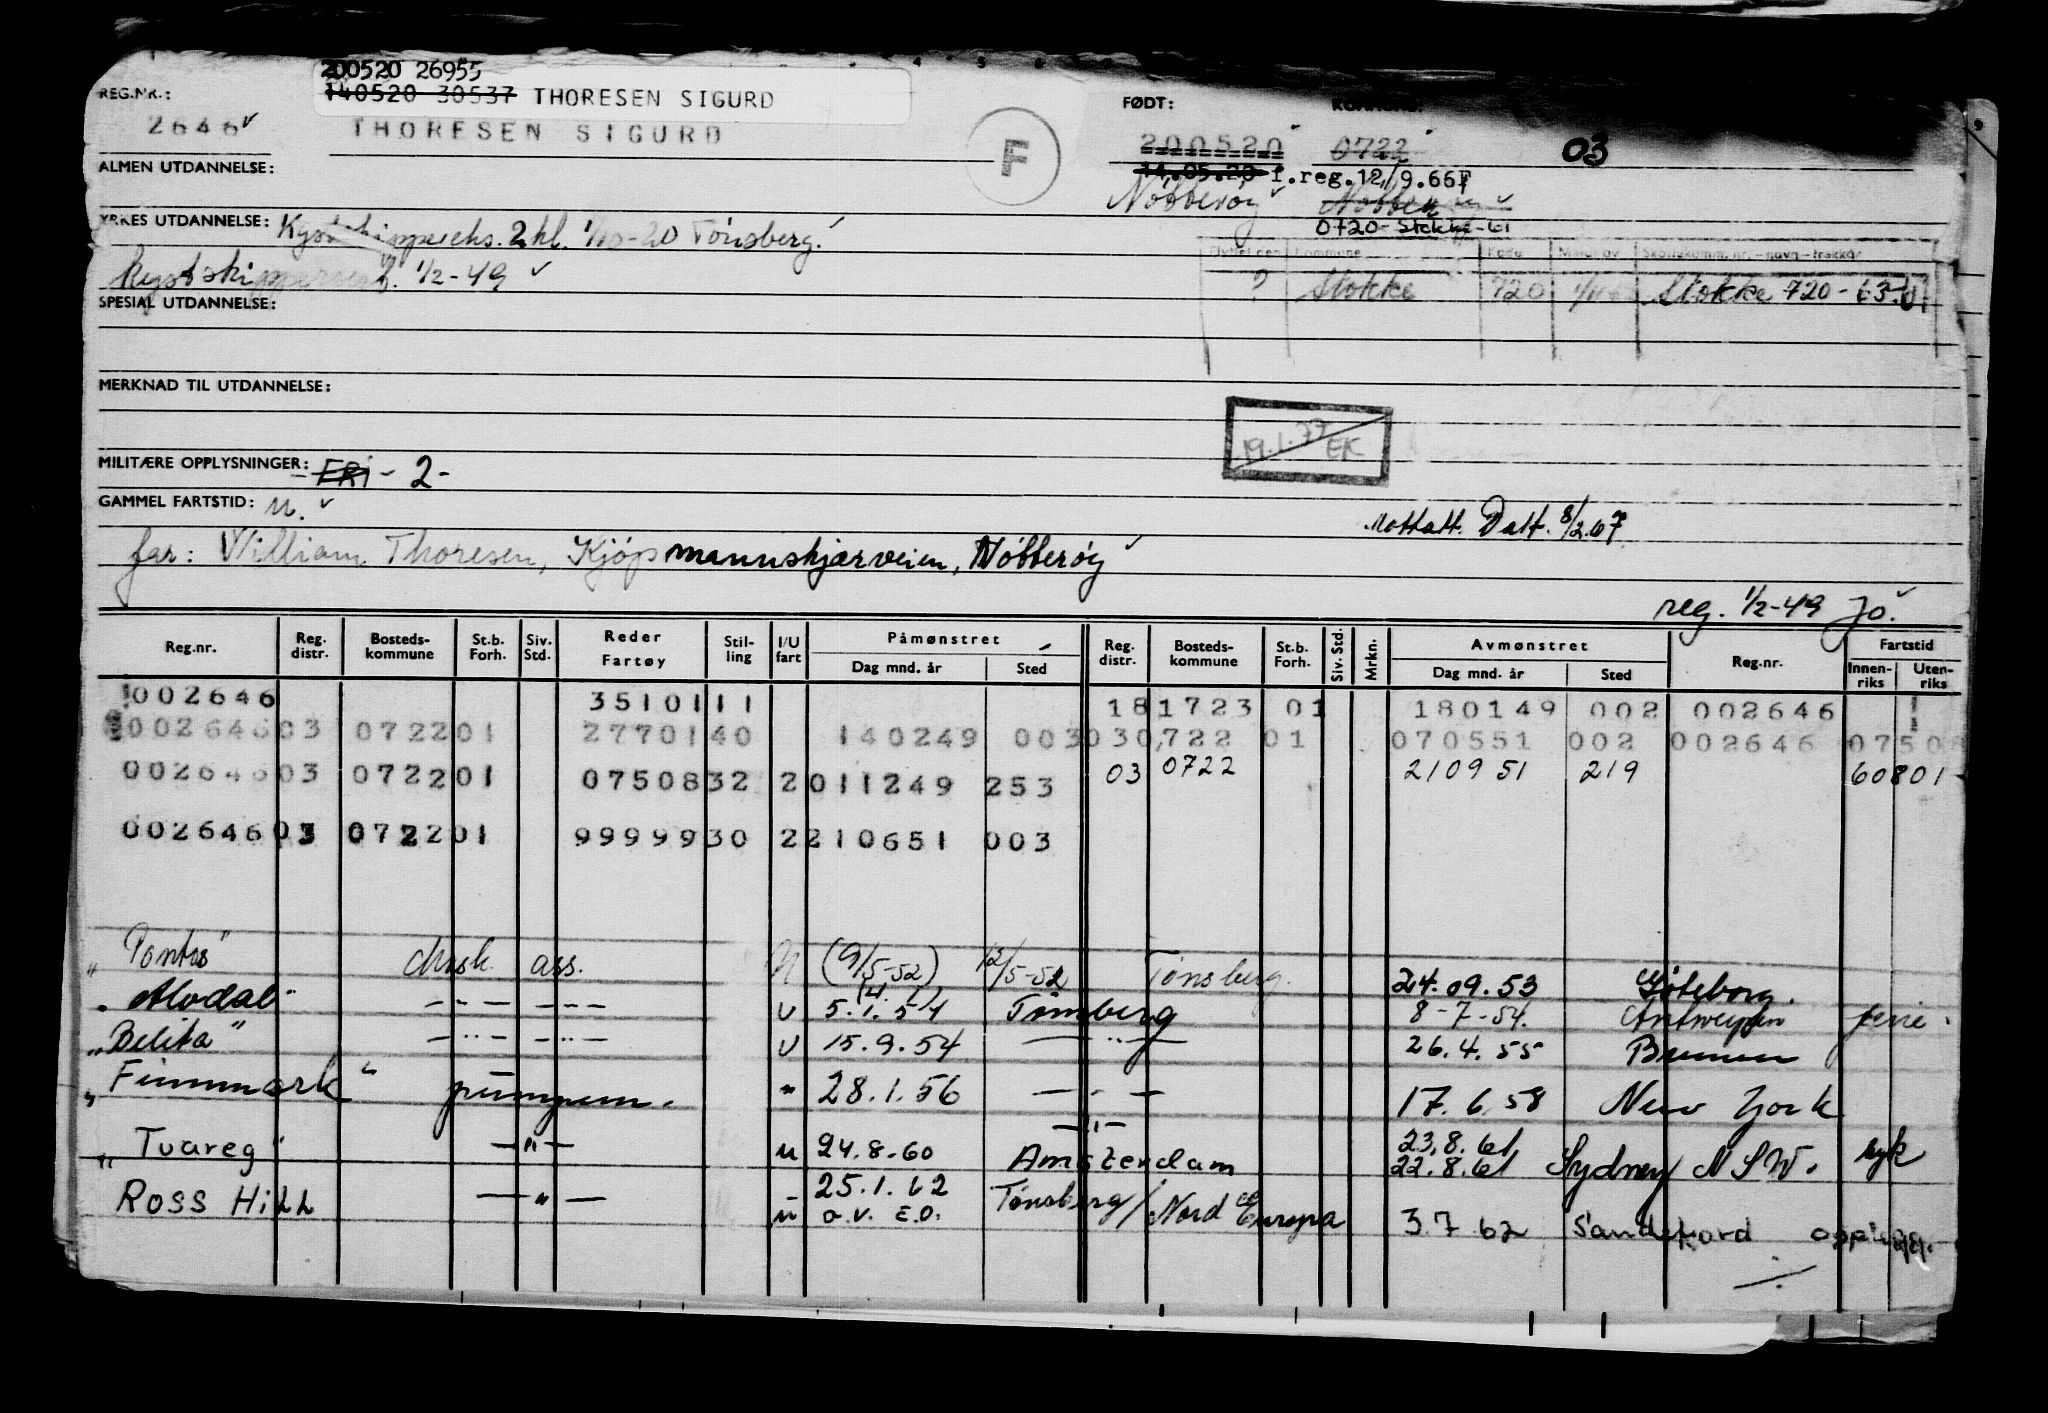 200520 26955
140520 30537 THORESEN SIGURD
REG.NR.: FØDT:
2646 THORESEN SIGURD F 200520 0722 03
ALMEN UTDANNELSE: 14.05.20 f.reg.12/9.66
Nøtterøy
YRKES UTDANNELSE: 2 kl. Tønsberg. 0720-Stokke-61
Kystskipper 1/2-49 ? Stokke 720 Stokke 720-63
SPESIAL UTDANNELSE:
MERKNAD TIL UTDANNELSE:
19.1.77 EK
MILITÆRE OPPLYSNINGER: - FRI - 2 -
GAMMEL FARTSTID: u.
Mottatt. Datt. 8/2.67
far: William Thoresen, Kjøpmannskjærveien, Nøtterøy
reg. 1/2-49 Jo.
Reg.nr. Reg. distr. Bosteds-kommune St.b. Forh. Siv. Std. Reder Fartøy Stil-ling I/U fart Påmønstret Dag mnd. år Sted Reg. distr. Bosteds-kommune St.b. Forh. Siv. Std. Mrkn. Avmønstret Dag mnd. år Sted Reg.nr. Fartstid Innen-riks Uten-riks
002646 3510111 181723 01 180149 002 002646
00264603 072201 2770140 140249 003030,722 01 070551 002 002646 0750
00264603 072201 0750832 2011249 253 03 0722 210951 219 60801
00264603 072201 9999930 2210651 003
"Pontos" ass. (9/5-52) 12/5-52 Tønsberg. 24.09.53 Gøteborg.
"Alvdal" — — — — U 5.1.54 Tønsberg 8-7-54. Antwerpen ferie.
"Belita" — " — — " — U 15.9.54 — " — 26.4.55 Bremen
"Finnmark" pumpem. " 28.1.56 — " — 17.6.58 New York
— " —
"Tuareg" — " — u 24.8.60 Amsterdam 23.8.61 22.8.61 Sydney N S W. syk
Ross Hill — " — u 25.1.62 o.v. E.O. Tønsberg/Nord Europa 3.7.62 Sandefjord